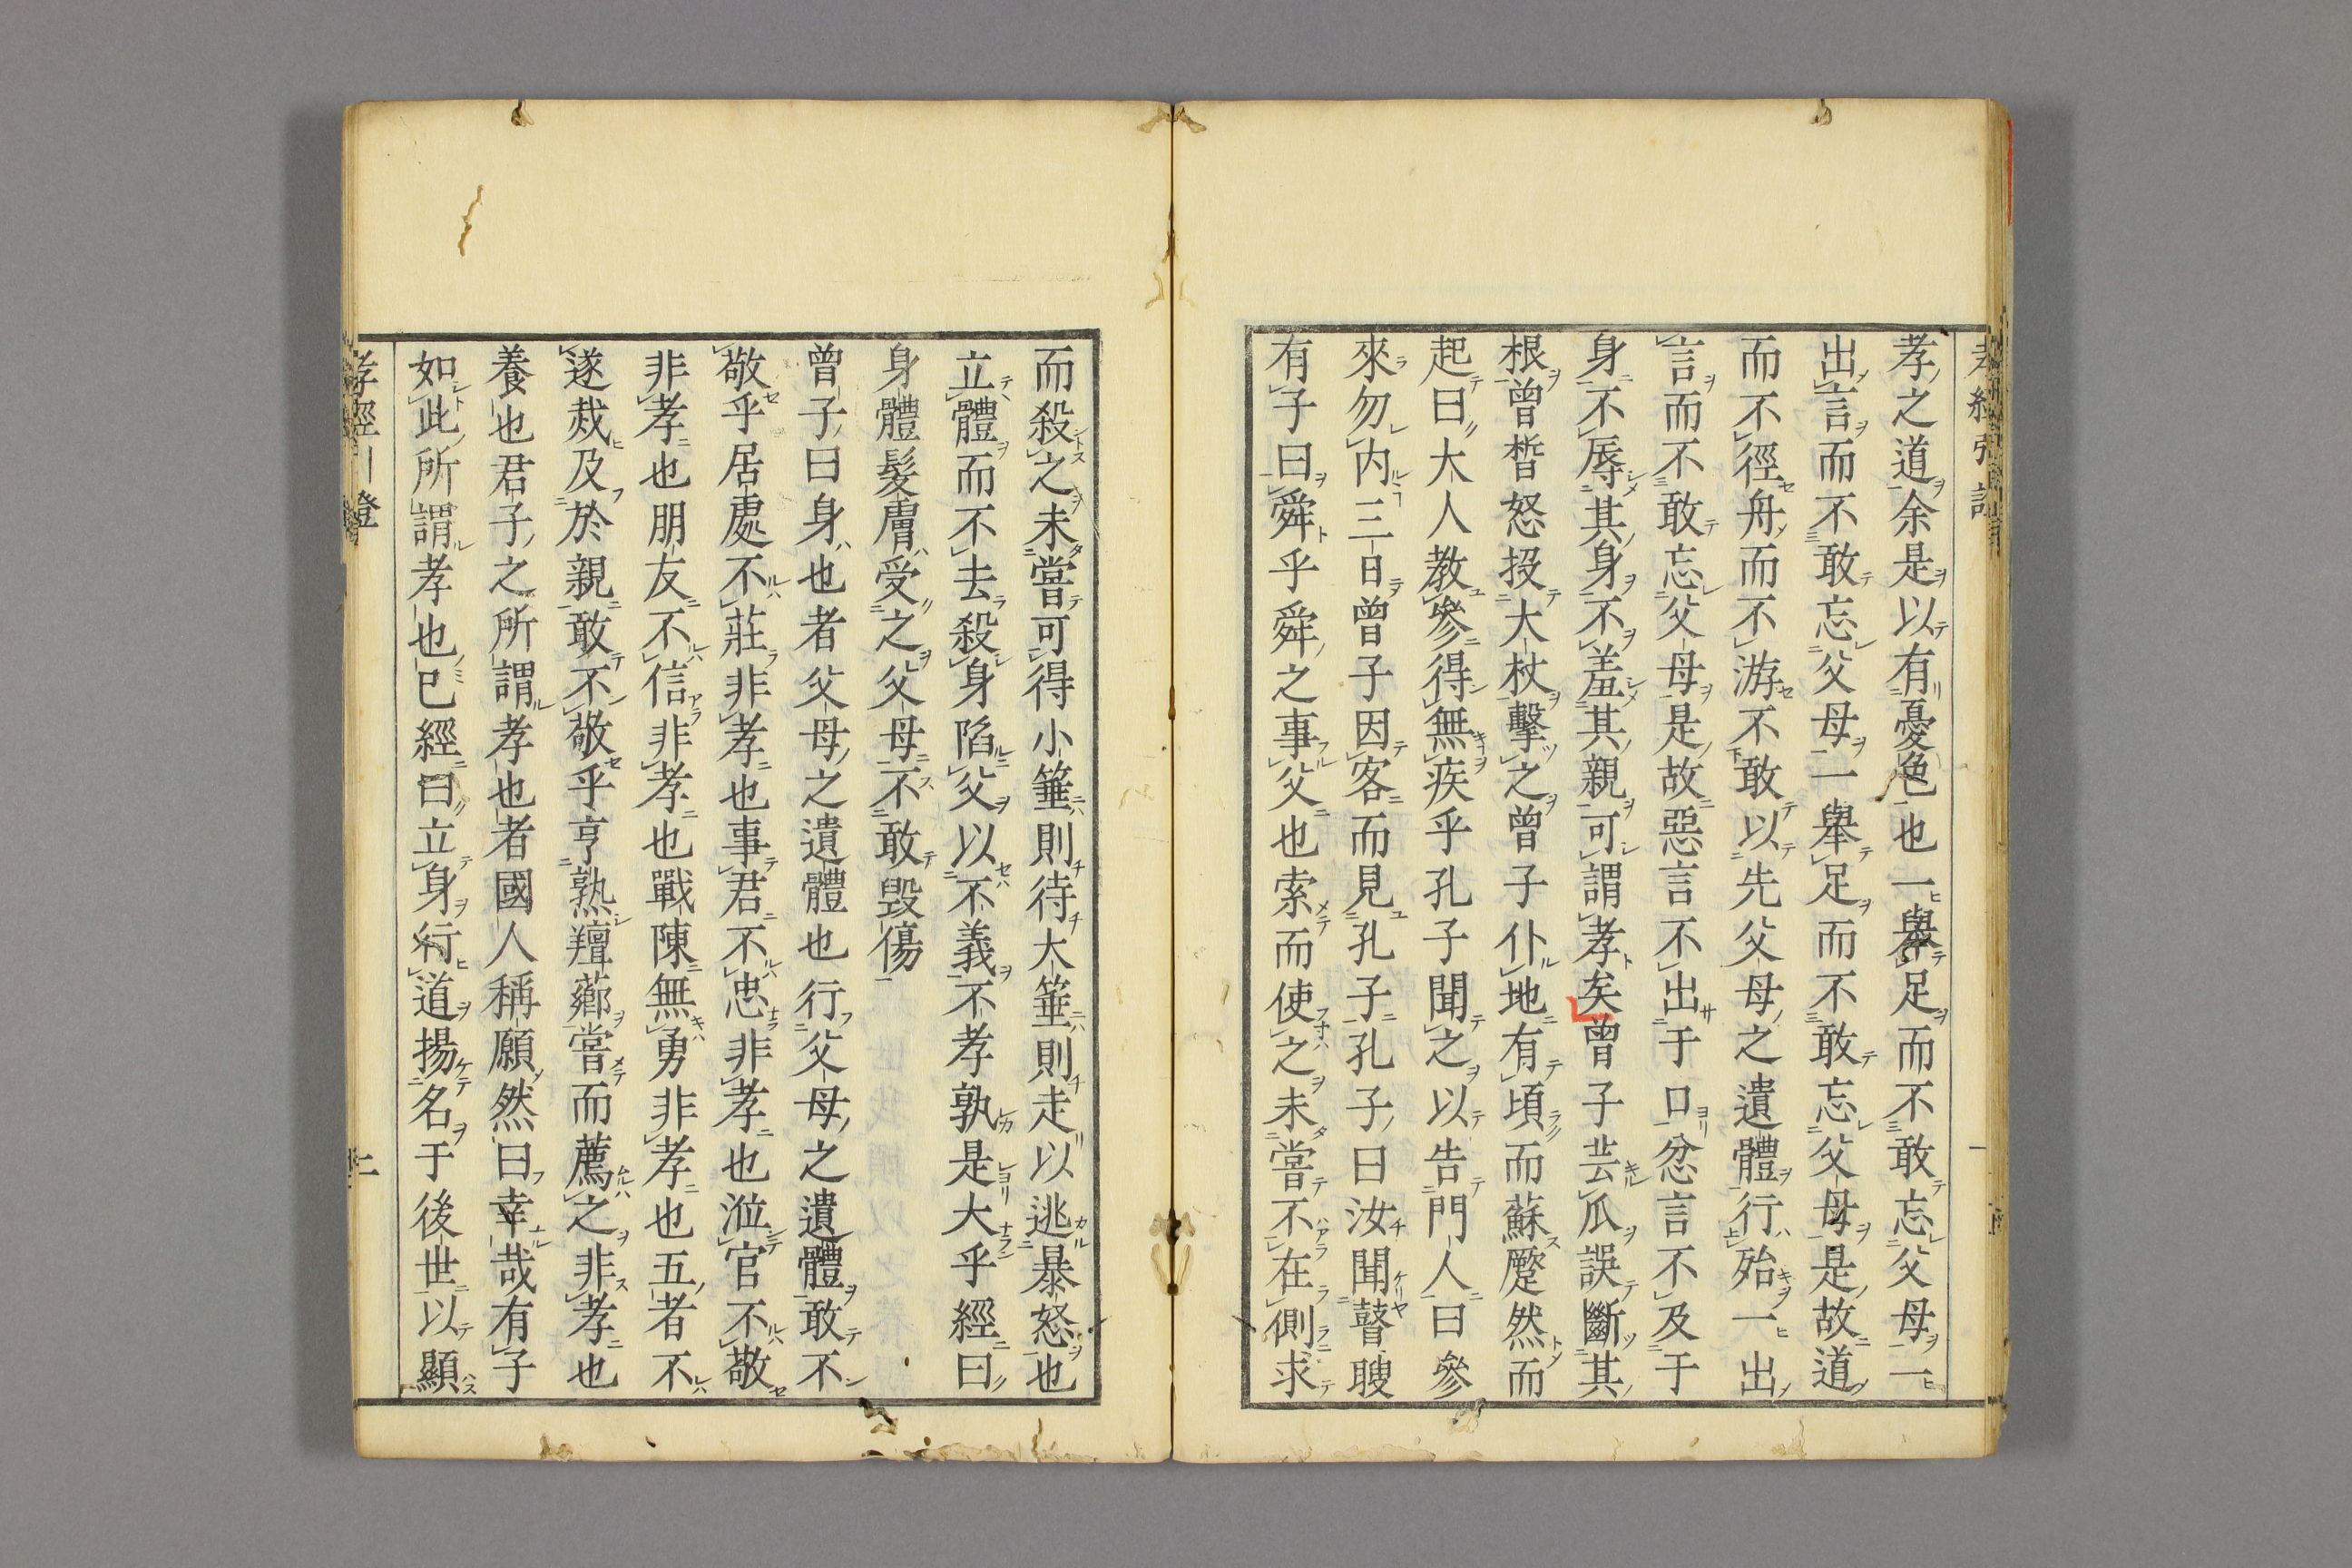 孝之道余是以有憂色也一舉足而不敢忘父母一
出言而不敢忘父母一舉足而不敢忘父母是故道
而不徑舟而不游不敢以先父母之遺體行殆一出
言而不敢忘父母是故惡言不出于口忿言不及于
身不辱其身不羞其親可謂孝矣曾子芸瓜誤斷其
根曾晳怒投大杖擊之曾子仆地有頃而蘇蹷然而
起曰大人教參得無疾乎孔子聞之以告門人曰參
來勿內三日曾子因客而見孔子孔子曰汝聞瞽瞍
有子曰舜乎舜之事父也索而使之未嘗不在側求
而殺之未嘗可得小箠則待大箠則走以逃暴怒也
立體而不去殺身陷父以不義不孝孰是大乎經曰
身體髮膚受之父母不敢毀傷
曾子曰身也者父母之遺體也行父母之遺體敢不
敬乎居處不莊非孝也事君不忠非孝也涖官不敬
非孝也朋友不信非孝也戰陳無勇非孝也五者不
遂烖及於親敢不敬乎亨熟羶薌嘗而薦之非孝也
養也君子之所謂孝也者國人稱願然曰幸哉有子
如此所謂孝也已經曰立身行道揚名于後世以顯
孝經引證 二